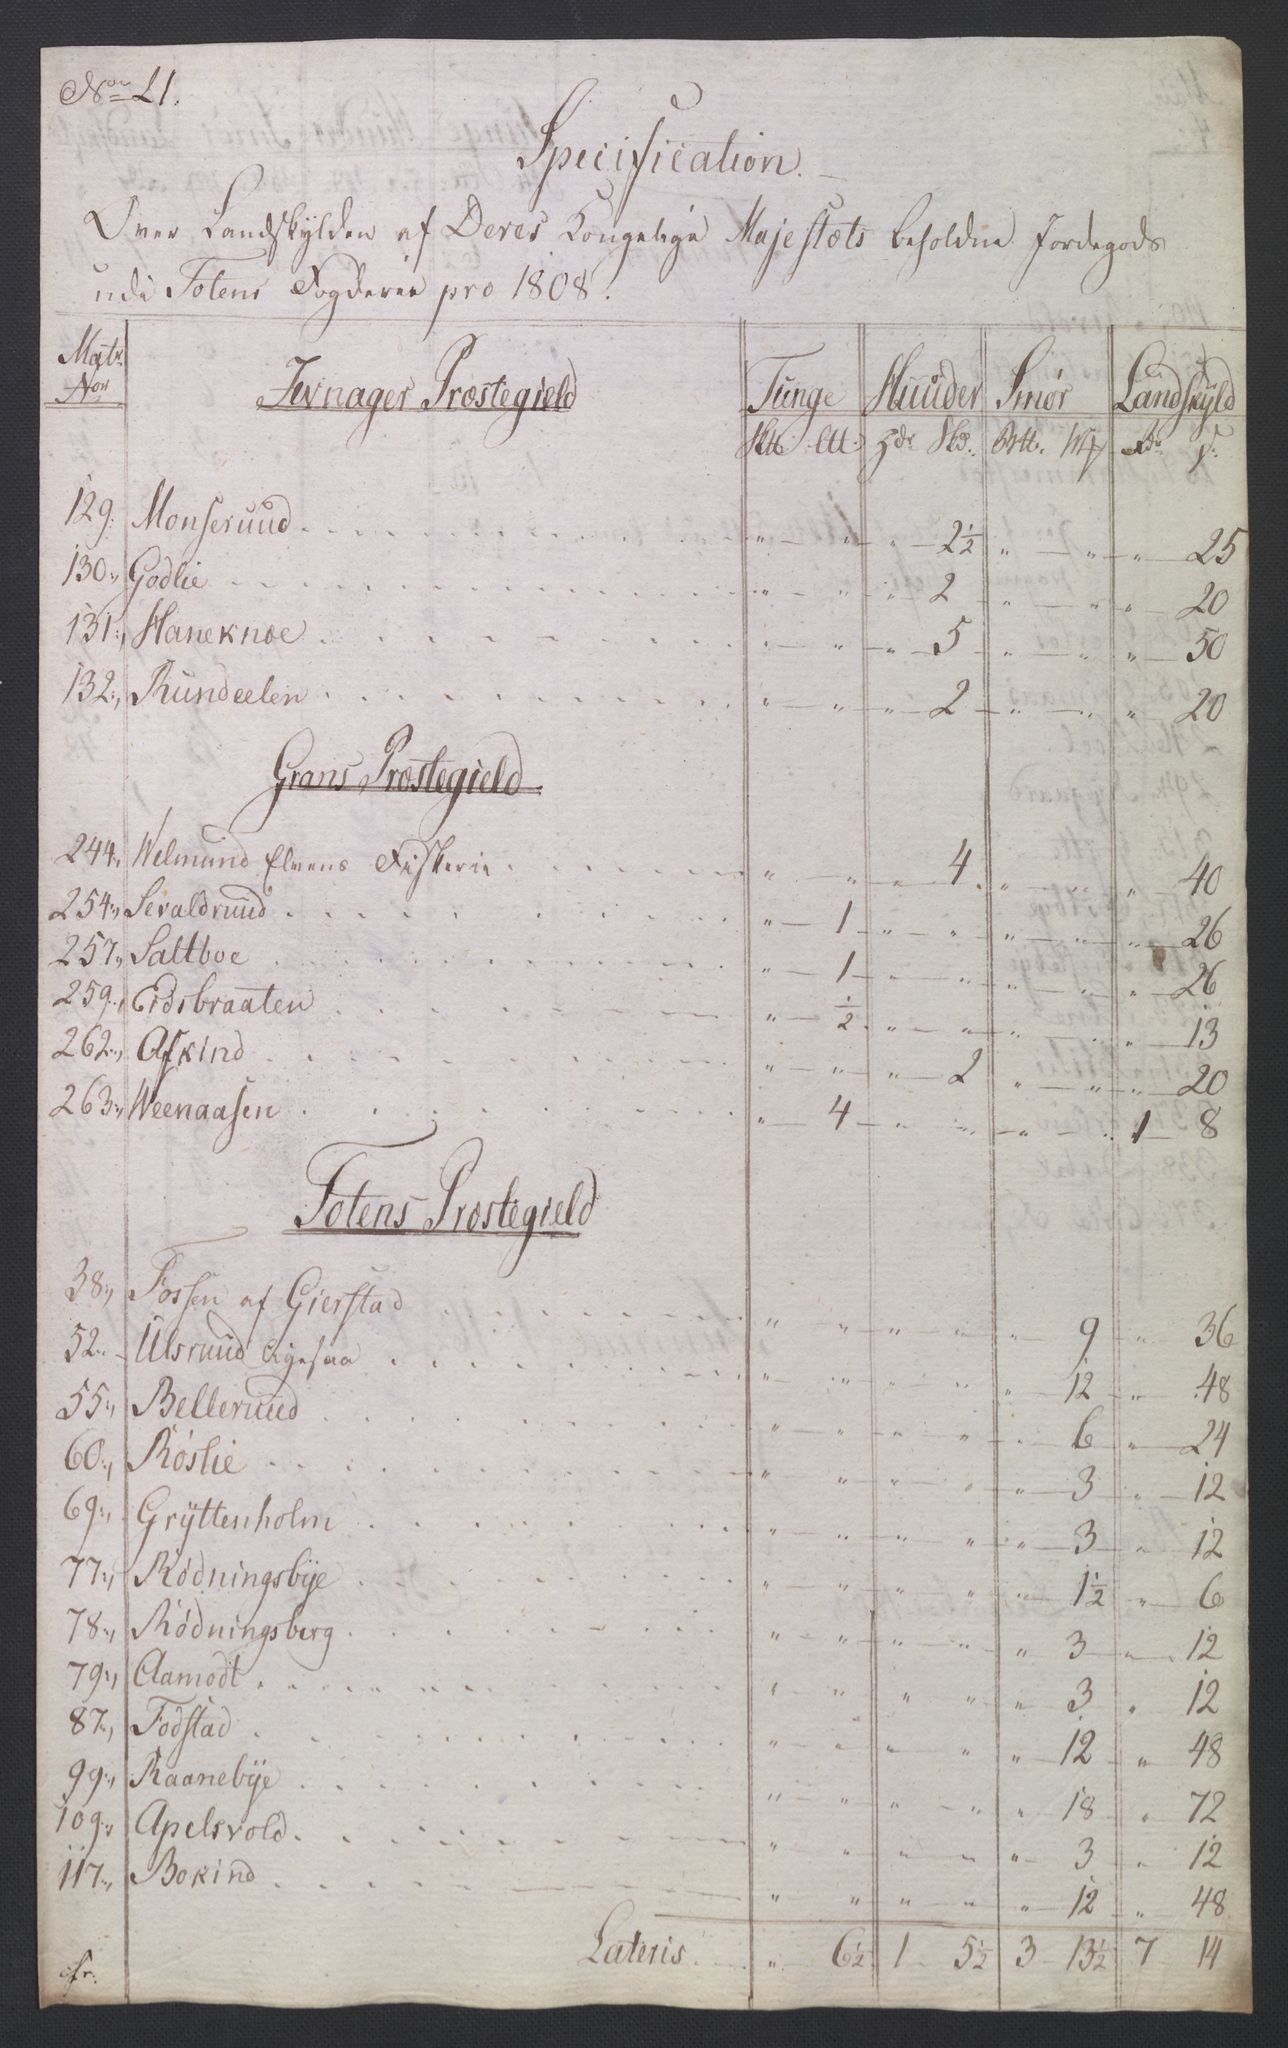 No 21.
Specification.
Over Landskylden af Deres Kongelige Majestæts beholdne Jordegods
udi Totens Fogderie pro 1808.
Matr. Nor | Jevnager Præstegield | Tunge | Huuder | Smør | Landskyld
129. Monseruud . . . " " " 2½ " " " 25
130. Godlie . . . " " " 2 " " " 20
131. Haneknæe . . . " " " 5 " " " 50
132. Rundeelen . . . " " " 2 " " " 20
Grans Præstegield
244. Welmund Elvens Fiskerie . . . " " " 4 " " " 40
254. Sevaldruud . . . " 1 " " " " " 26
257. Saltboe . . . " 1 " " " " " 26
259. Eidsbraaten . . . " ½ " " " " " 13
262. Askind . . . " " " 2 " " " 20
263. Weenaasen . . . " 4 " " " " 1 8
Totens Præstegield
38. Fossen af Gierstad . . . " " " " " 9 " 36
52. Ulsruud . . . " " " " " 12 " 48
55. Belleruud . . . " " " " " 6 " 24
60. Røslie . . . " " " " " 3 " 12
69. Gryttenholm . . . " " " " " 3 " 12
77. Rødningsbye . . . " " " " " 1½ " 6
78. Rødningsberg . . . " " " " " 3 " 12
79. Aamodt . . . " " " " " 3 " 12
87. Fodstad . . . " " " " " 12 " 48
99. Raanebye . . . " " " " " 18 " 72
109. Apelsvold . . . " " " " " 3 " 12
117. Bokind . . . " " " " " 12 " 48
Lateris . . . " 6½ 1 5½ 3 13½ 7 14